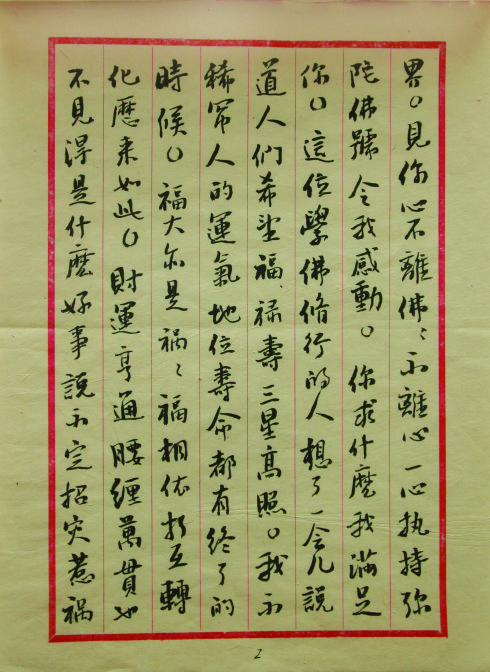 界。見你心不離佛〻不離心一心执持弥
陀佛號令我感動。你求什麼我滿足
你。這位學佛脩行的人想了一会儿説
道人們希望福、禄壽三星高照。我不
稀罕人的運氣地位壽命都有终了的
時候。福大亦是祸〻福相依互轉
化歷来如此。財運亨通腰缠萬貫也
不見淂是什麼好事説不定招灾惹祸
2